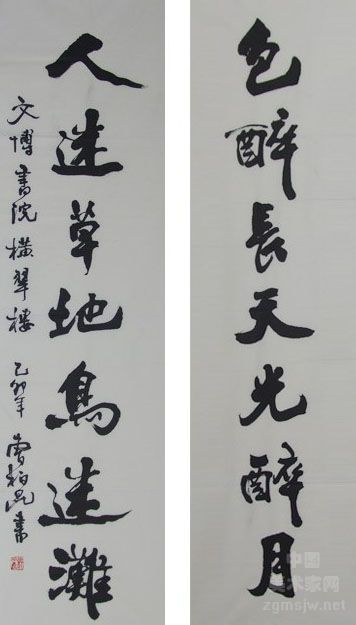 色醉長天光醉月
人迷草地鳥迷灘
文博書院橫翠樓 己卯年 曹柏昆書
中国
美术家网
zgmsjw.net